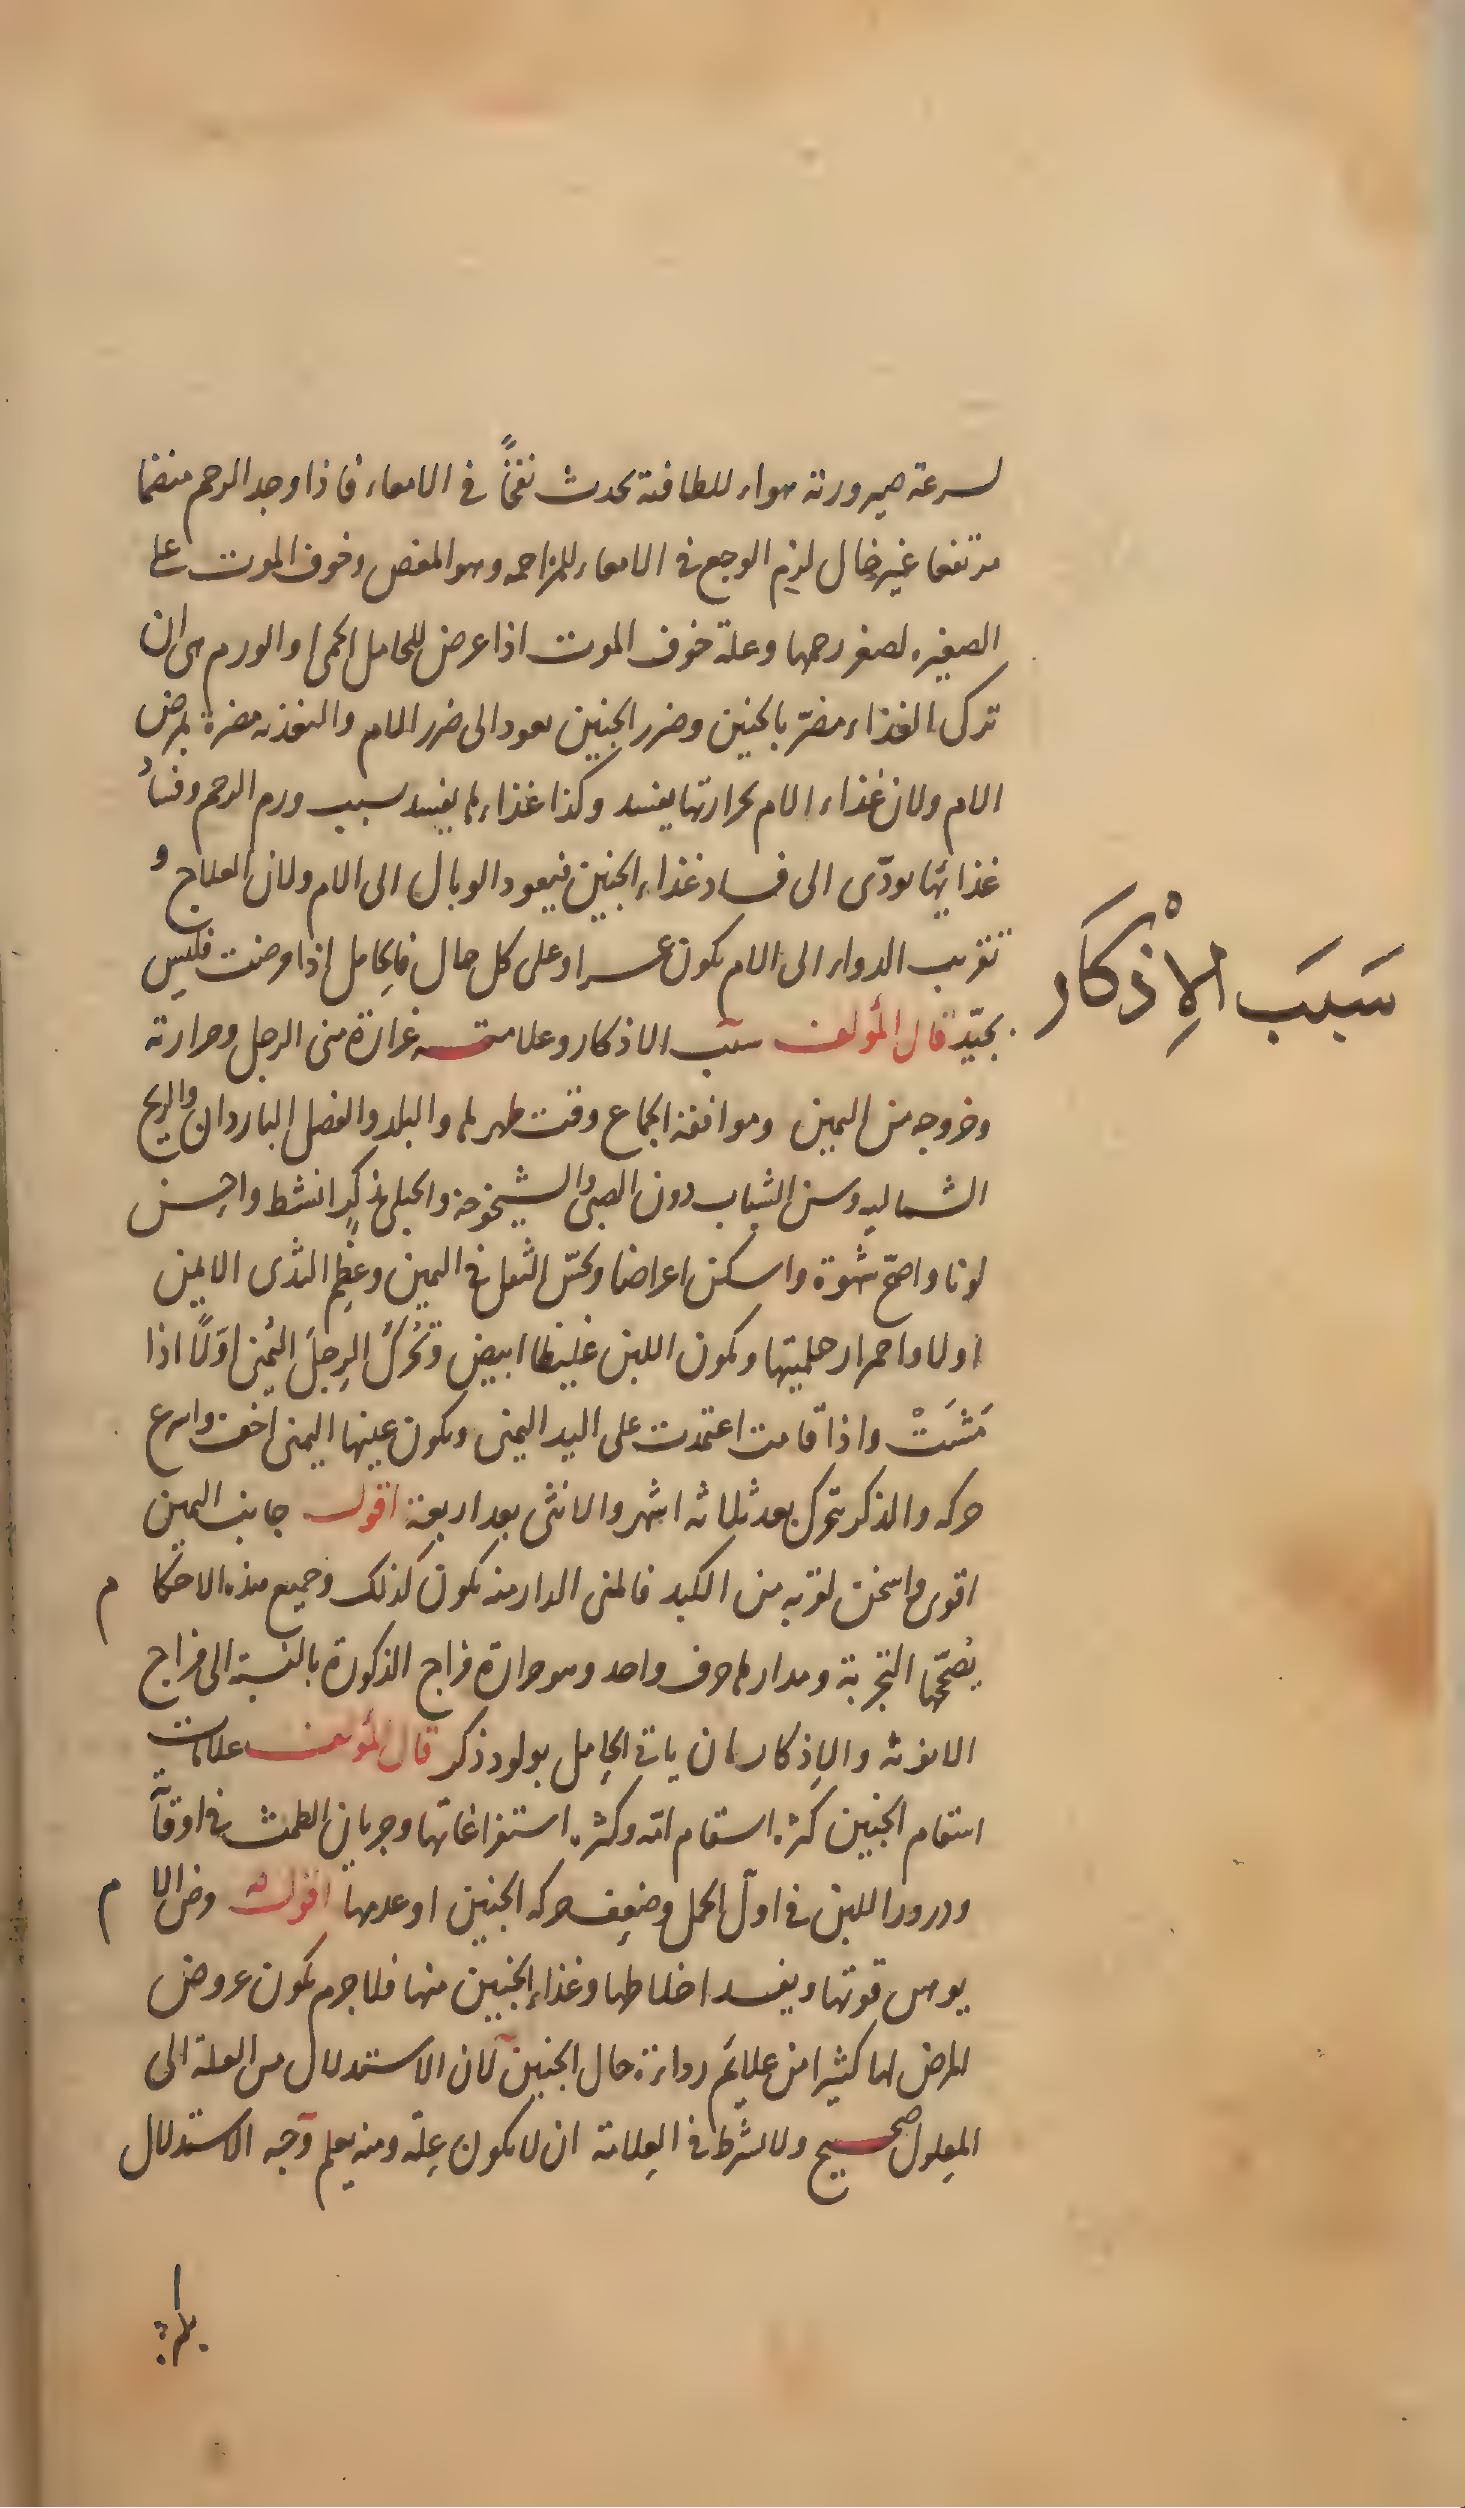 لسرعة صيرورته هواء للطافته يحدث نفخًا في الامعاء فاذا وجد الرحم منضما
مرتفعا غير خال لزم الوجع في الامعاء للمزاحمه وهو المغص وخوف الموت على
الصغيره لصغر رحمها وعلة خوف الموت اذا عرض للحامل الحمى والورم هي ان
ترك الغذاء مضرّ بالجنين وضرر الجنين يعود الى ضرر الام والتغذيه مضرة بمرض
الام ولان غذاء الام بحرارتها يفسد وكذا غذاءها يفسد بسبب ورم الرحم وفساد
غذائها يودّى الى فساد غذاء الجنين فيعود الوبال الى الام ولان العلاج و
تقريب الدواء الى الام يكون عسرا وعلى كل حال فالحامل اذا مرضت فليس
بجيّد قال المؤلف سبب الاذكار وعلامته غزارة منى الرجل وحرارته
سَبَب الْاِذْكَار
وخروجه من اليمين وموافقة الجماع وقت طهرها والبلد والفصل الباردان والريح
الشماليه وسن الشباب دون الصبى والشيخوخة والحبلى بذكرٍ انشط واحسن
لونا واصحّ شهوة واسكن اعراضا وتحسّ الثقل في اليمين وعِظَم الثدى الايمن
اولا واحمرار حلمتيها ويكون اللبن غليظا ابيض وتُحركُ الرِجلَ اليُمنى اوّلًا اذا
مَشَتْ واذا قامت اعتمدت على اليد اليمنى ويكون عينها اليمنى اخف واسرع
حركه والذكر يتحرك بعد ثلاثه اشهر والانثى بعد اربعة اقول جانب اليمين
اقوى واسخن لقربه من الكبد فالمنى الدار منه يكون كذلك وجميع هذه الاحكام
يُصحّحها التجربة ومدارها حرف واحد وهو حرارة مزاج الذكورة بالنسبة الى مزاج
الانوثه والاِذكار ان ياتي الحامل بولود ذكر قال المؤلف علامات
اسقام الجنين كثره اسقام امّه وكثره استفراغاتها وجريان الطمث في اوقاته
ودرور اللبن في اوّل الحمل وضعف حركه الجنين او عدمها اقول مرض الام
يوهن قوتها ويفسد اخلاطها وغذاء الجنين منها فلا جرم يكون عروض
المرض لها كثيرا من علائم رداءة حال الجنين لان الاستدلال من العلة الى
المعلول صحيح ولا يشرط في العلامة ان لا يكون عِلّة ومنه يعلم وجه الاستدلال